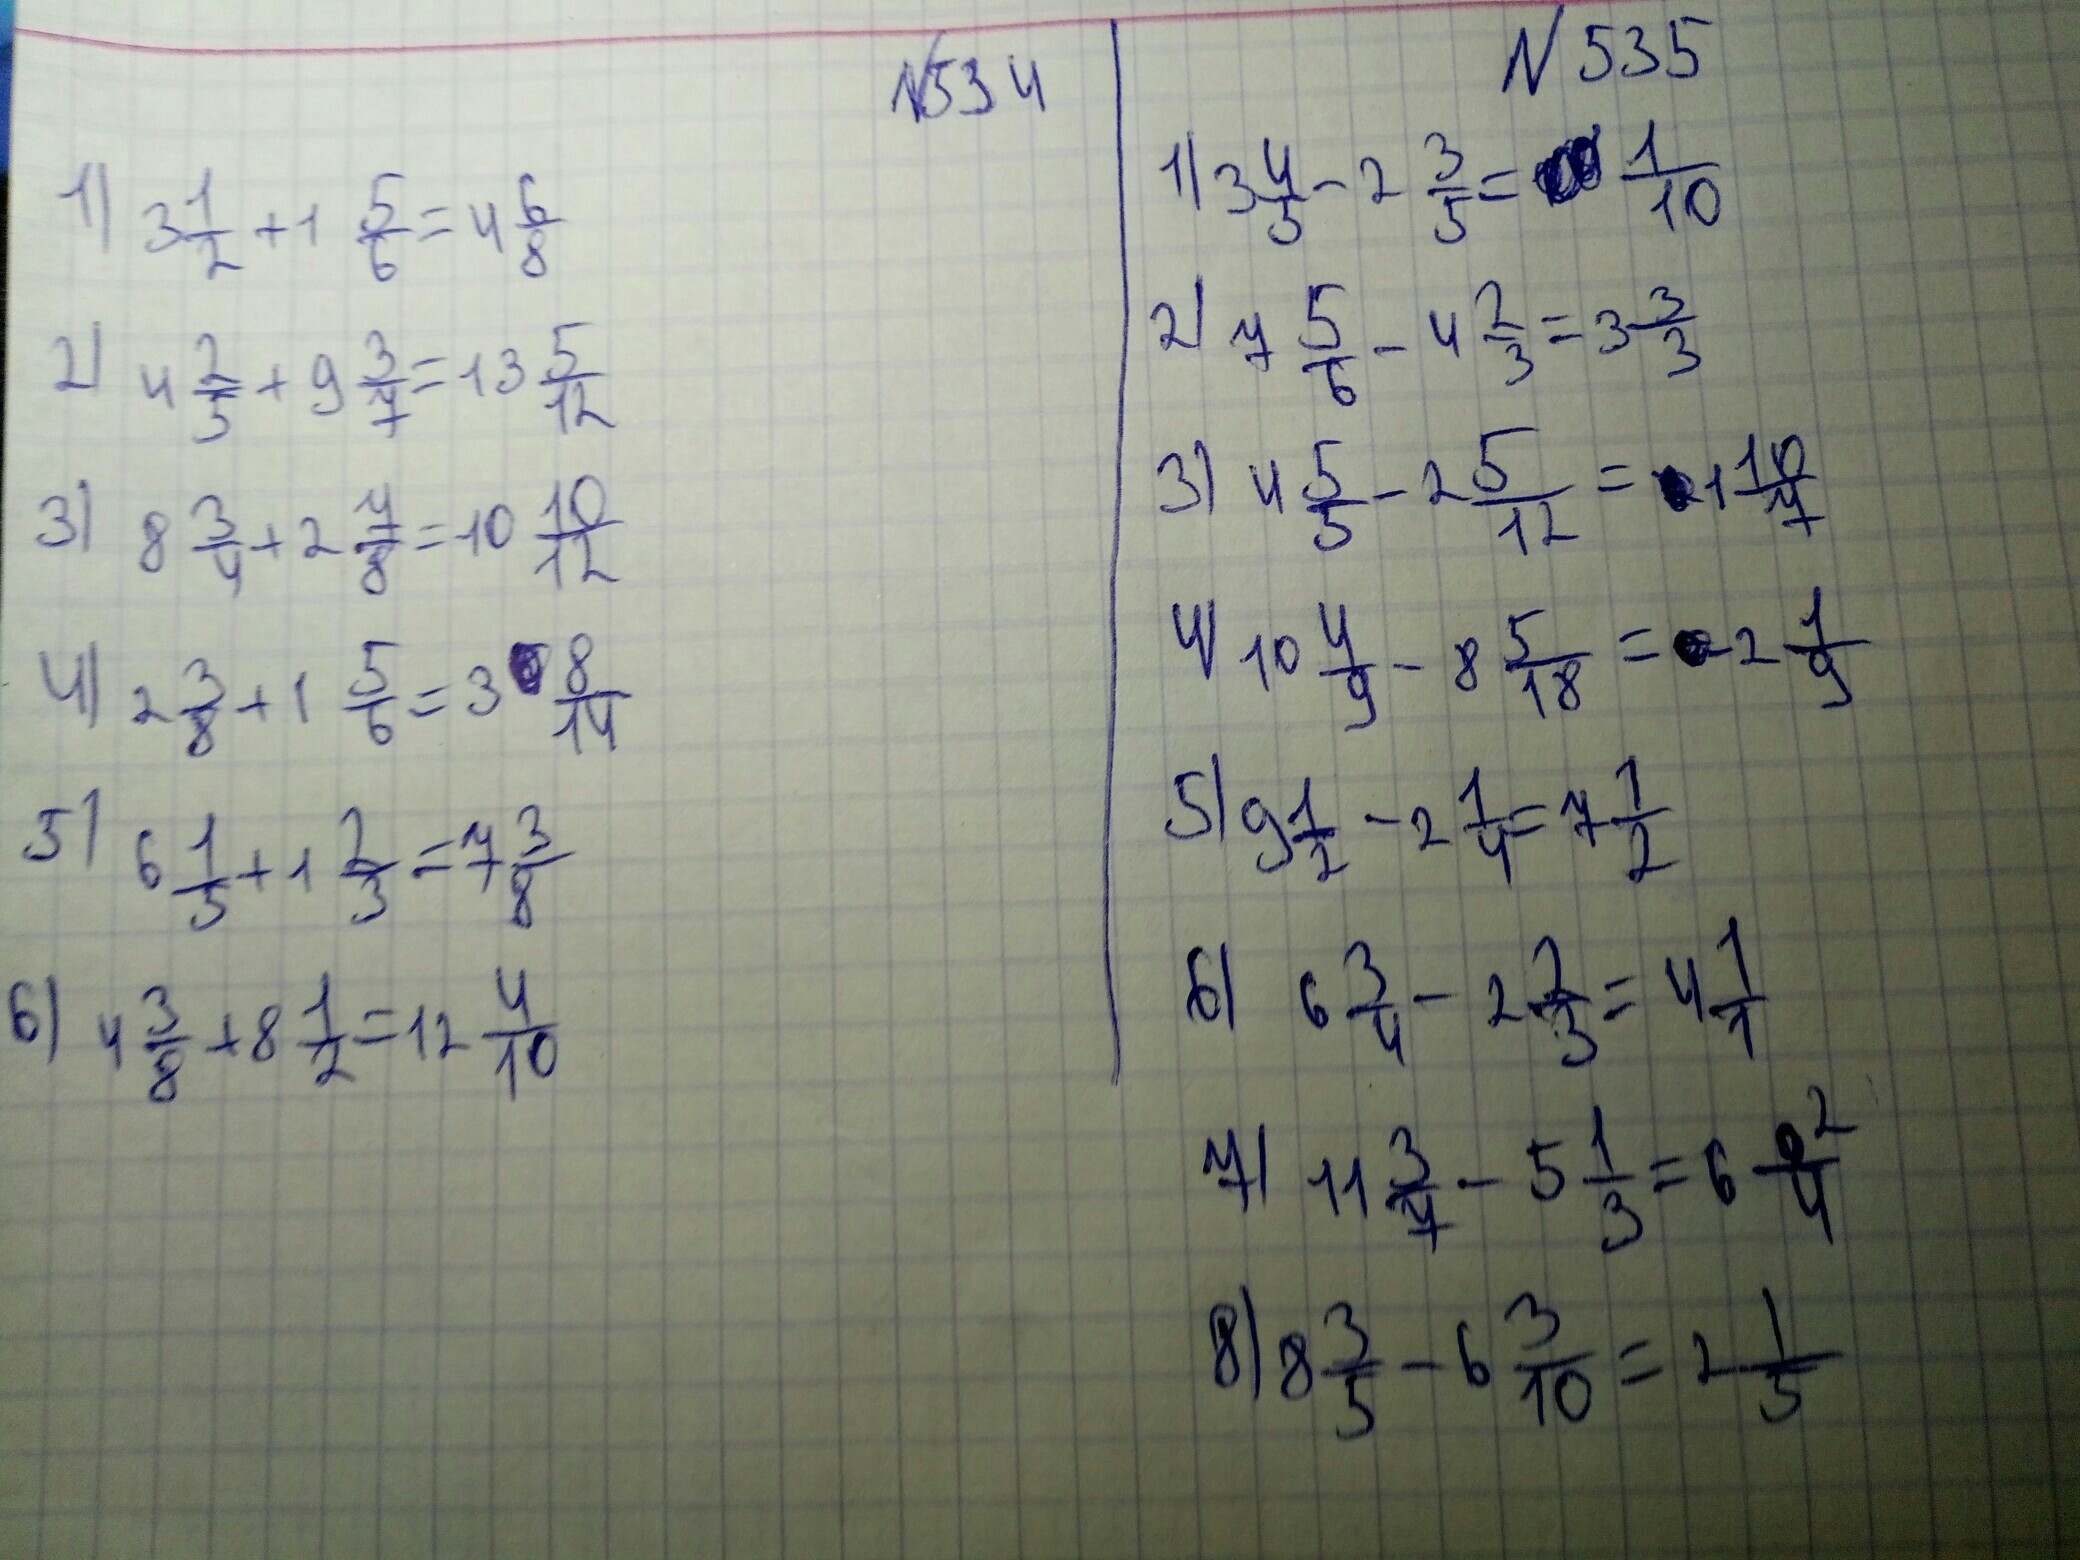 N534
1) 3 1/2 + 1 5/6 = 4 6/8
2) 4 2/5 + 9 3/7 = 13 5/12
3) 8 3/4 + 2 7/8 = 10 10/12
4) 2 3/8 + 1 5/6 = 3 8/14
5) 6 1/5 + 1 2/3 = 7 3/8
6) 4 3/8 + 8 1/2 = 12 4/10
N535
1) 3 4/5 - 2 3/5 = 1/10
2) 7 5/6 - 4 2/3 = 3 3/3
3) 4 5/5 - 2 5/12 = 1 10/7
4) 10 4/9 - 8 5/18 = 2 1/9
5) 9 1/2 - 2 1/4 = 7 1/2
6) 6 3/4 - 2 2/3 = 4 1/1
7) 11 3/7 - 5 1/3 = 6 2/4
8) 8 3/5 - 6 3/10 = 2 1/5